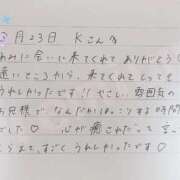 月23日 Kさん
みに会いに来てくれて ありがとう
遠いところから、来てくれてとっても
うれしかったです!! やさしい、雰囲気の
お兄様で、なんだかほっこりする時間
でした♡ 心が癒された って言
うれしかったです♡